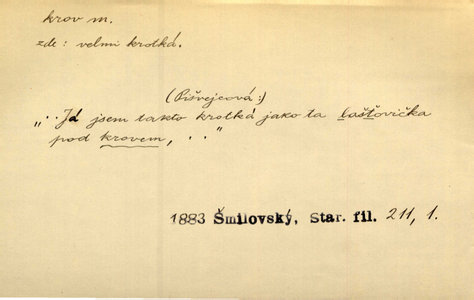 krov m.
zde: velmi krotká.
(Pišvejcová:)
„··Já jsem takto krotká jako ta laštovička
pod krovem, ··"
1883 Šmilovský, Star. fil. 211, 1.